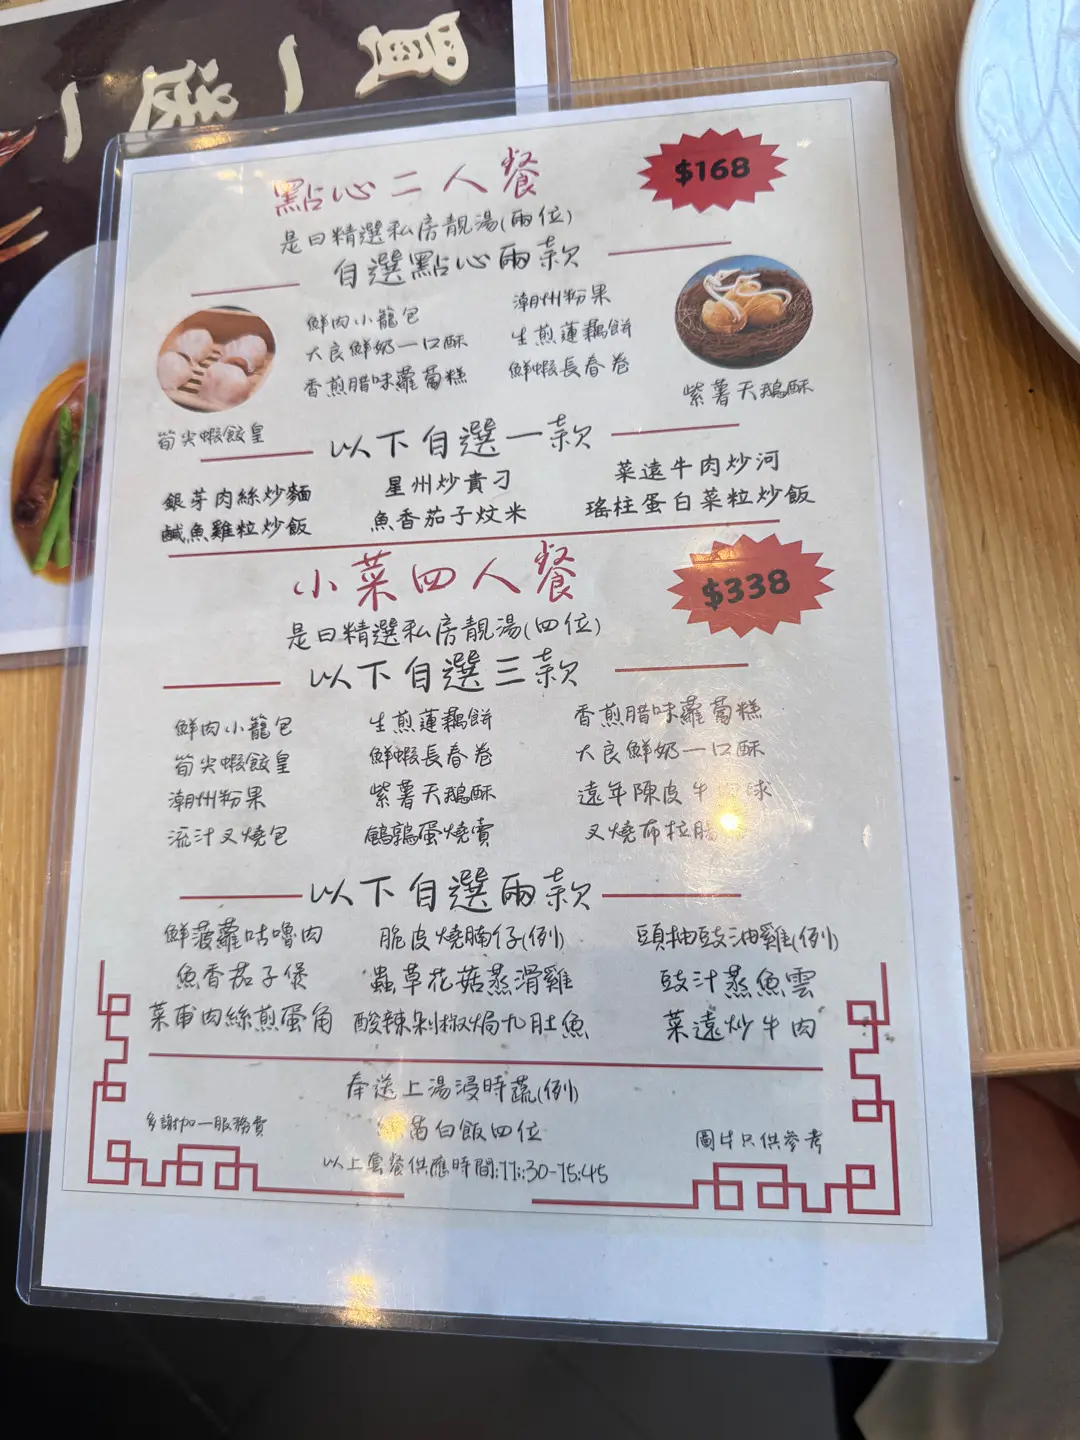 買一送一
點心二人餐
$168
是日精選私房靚湯(兩位)
自選點心兩款
鮮肉小籠包
潮州粉果
大良鮮奶一口酥
生煎蓮藕餅
香煎腊味蘿蔔糕
鮮蝦長春卷
紫薯天鵝酥
筍尖蝦餃皇
以下自選一款
銀芽肉絲炒麵
星州炒貴刁
菜遠牛肉炒河
鹹魚雞粒炒飯
魚香茄子炆米
瑤柱蛋白菜粒炒飯
小菜四人餐
$338
是日精選私房靚湯(四位)
以下自選三款
鮮肉小籠包
生煎蓮藕餅
香煎腊味蘿蔔糕
筍尖蝦餃皇
鮮蝦長春卷
大良鮮奶一口酥
潮州粉果
紫薯天鵝酥
遠年陳皮牛球
流汁叉燒包
鵪鶉蛋燒賣
叉燒布拉腸
以下自選兩款
鮮菠蘿咕嚕肉
脆皮燒腩仔(例)
頭抽豉油雞(例)
魚香茄子煲
蟲草花菇蒸滑雞
豉汁蒸魚雲
菜甫肉絲煎蛋角
酸辣剁椒焗九肚魚
菜遠炒牛肉
奉送上湯浸時蔬(例)
苗白飯四位
多謝加一服務費
圖片只供參考
以上套餐供應時間:11:30-15:45